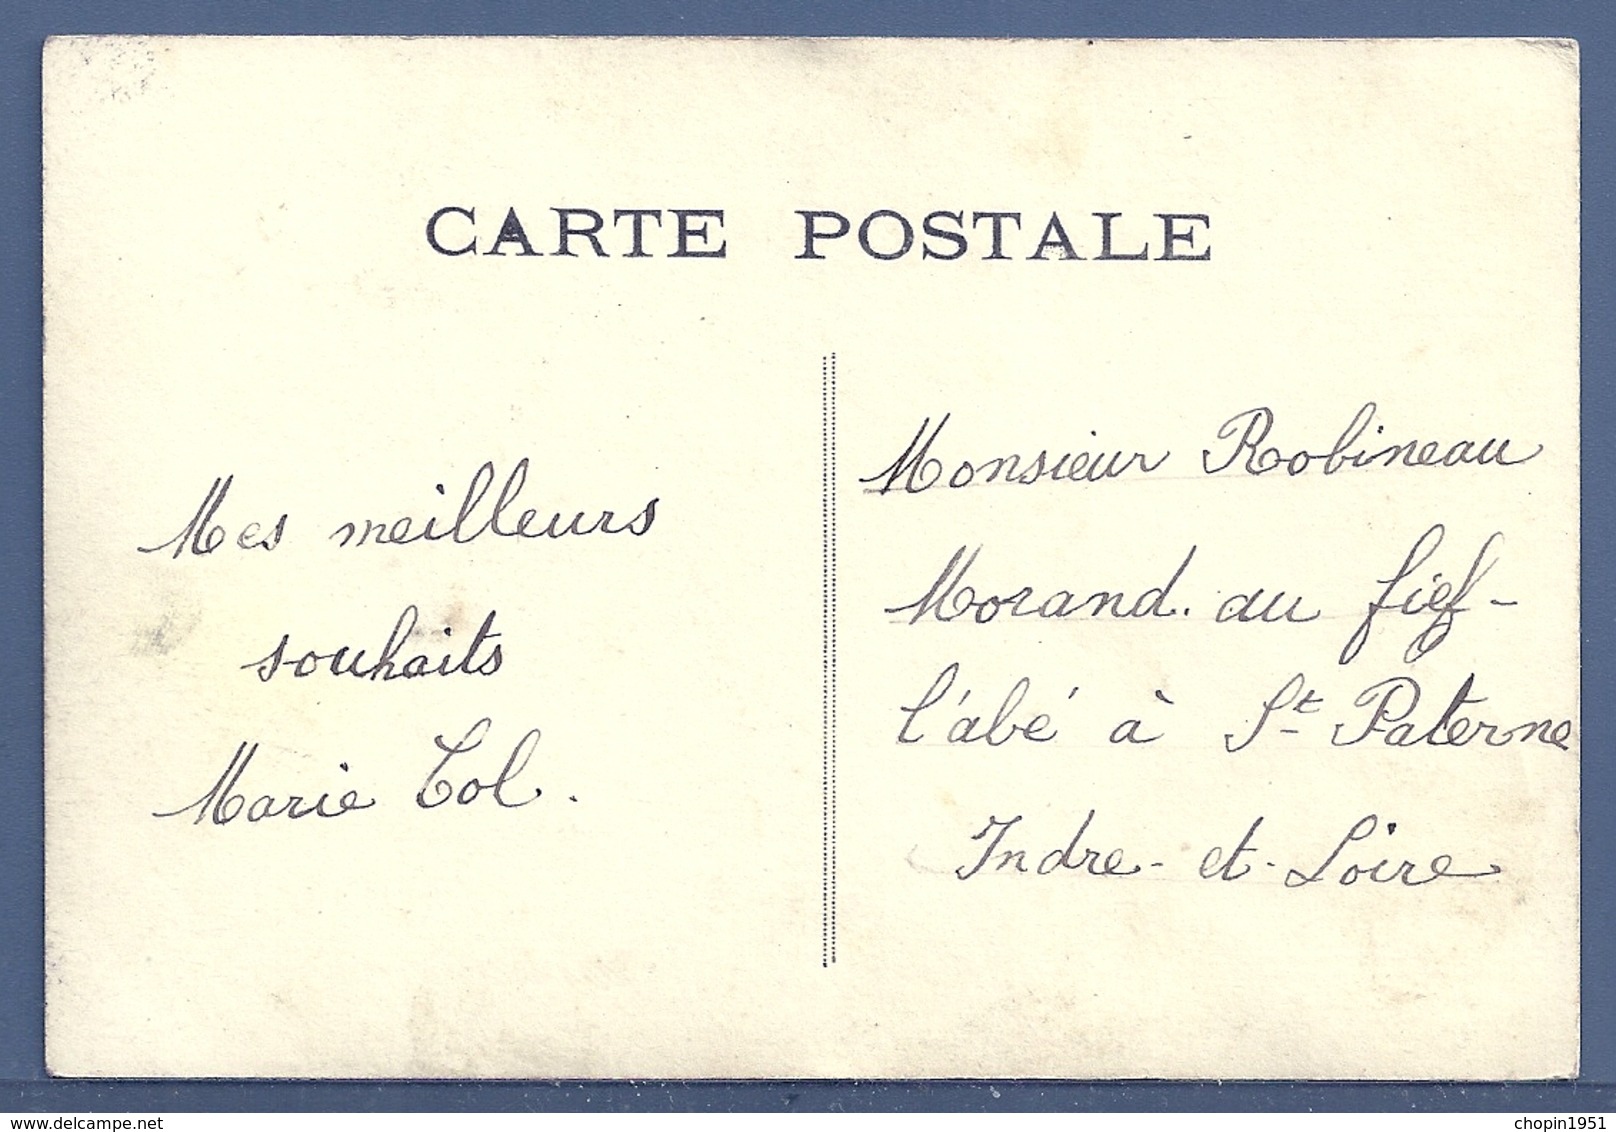 CARTE POSTALE
Mes meilleurs
souhaits
Marie Tol.
Monsieur Robineau
Morand. au fief-
l'abé à St Paterne
Indre-et-Loire
delcampe.net
chopin1951